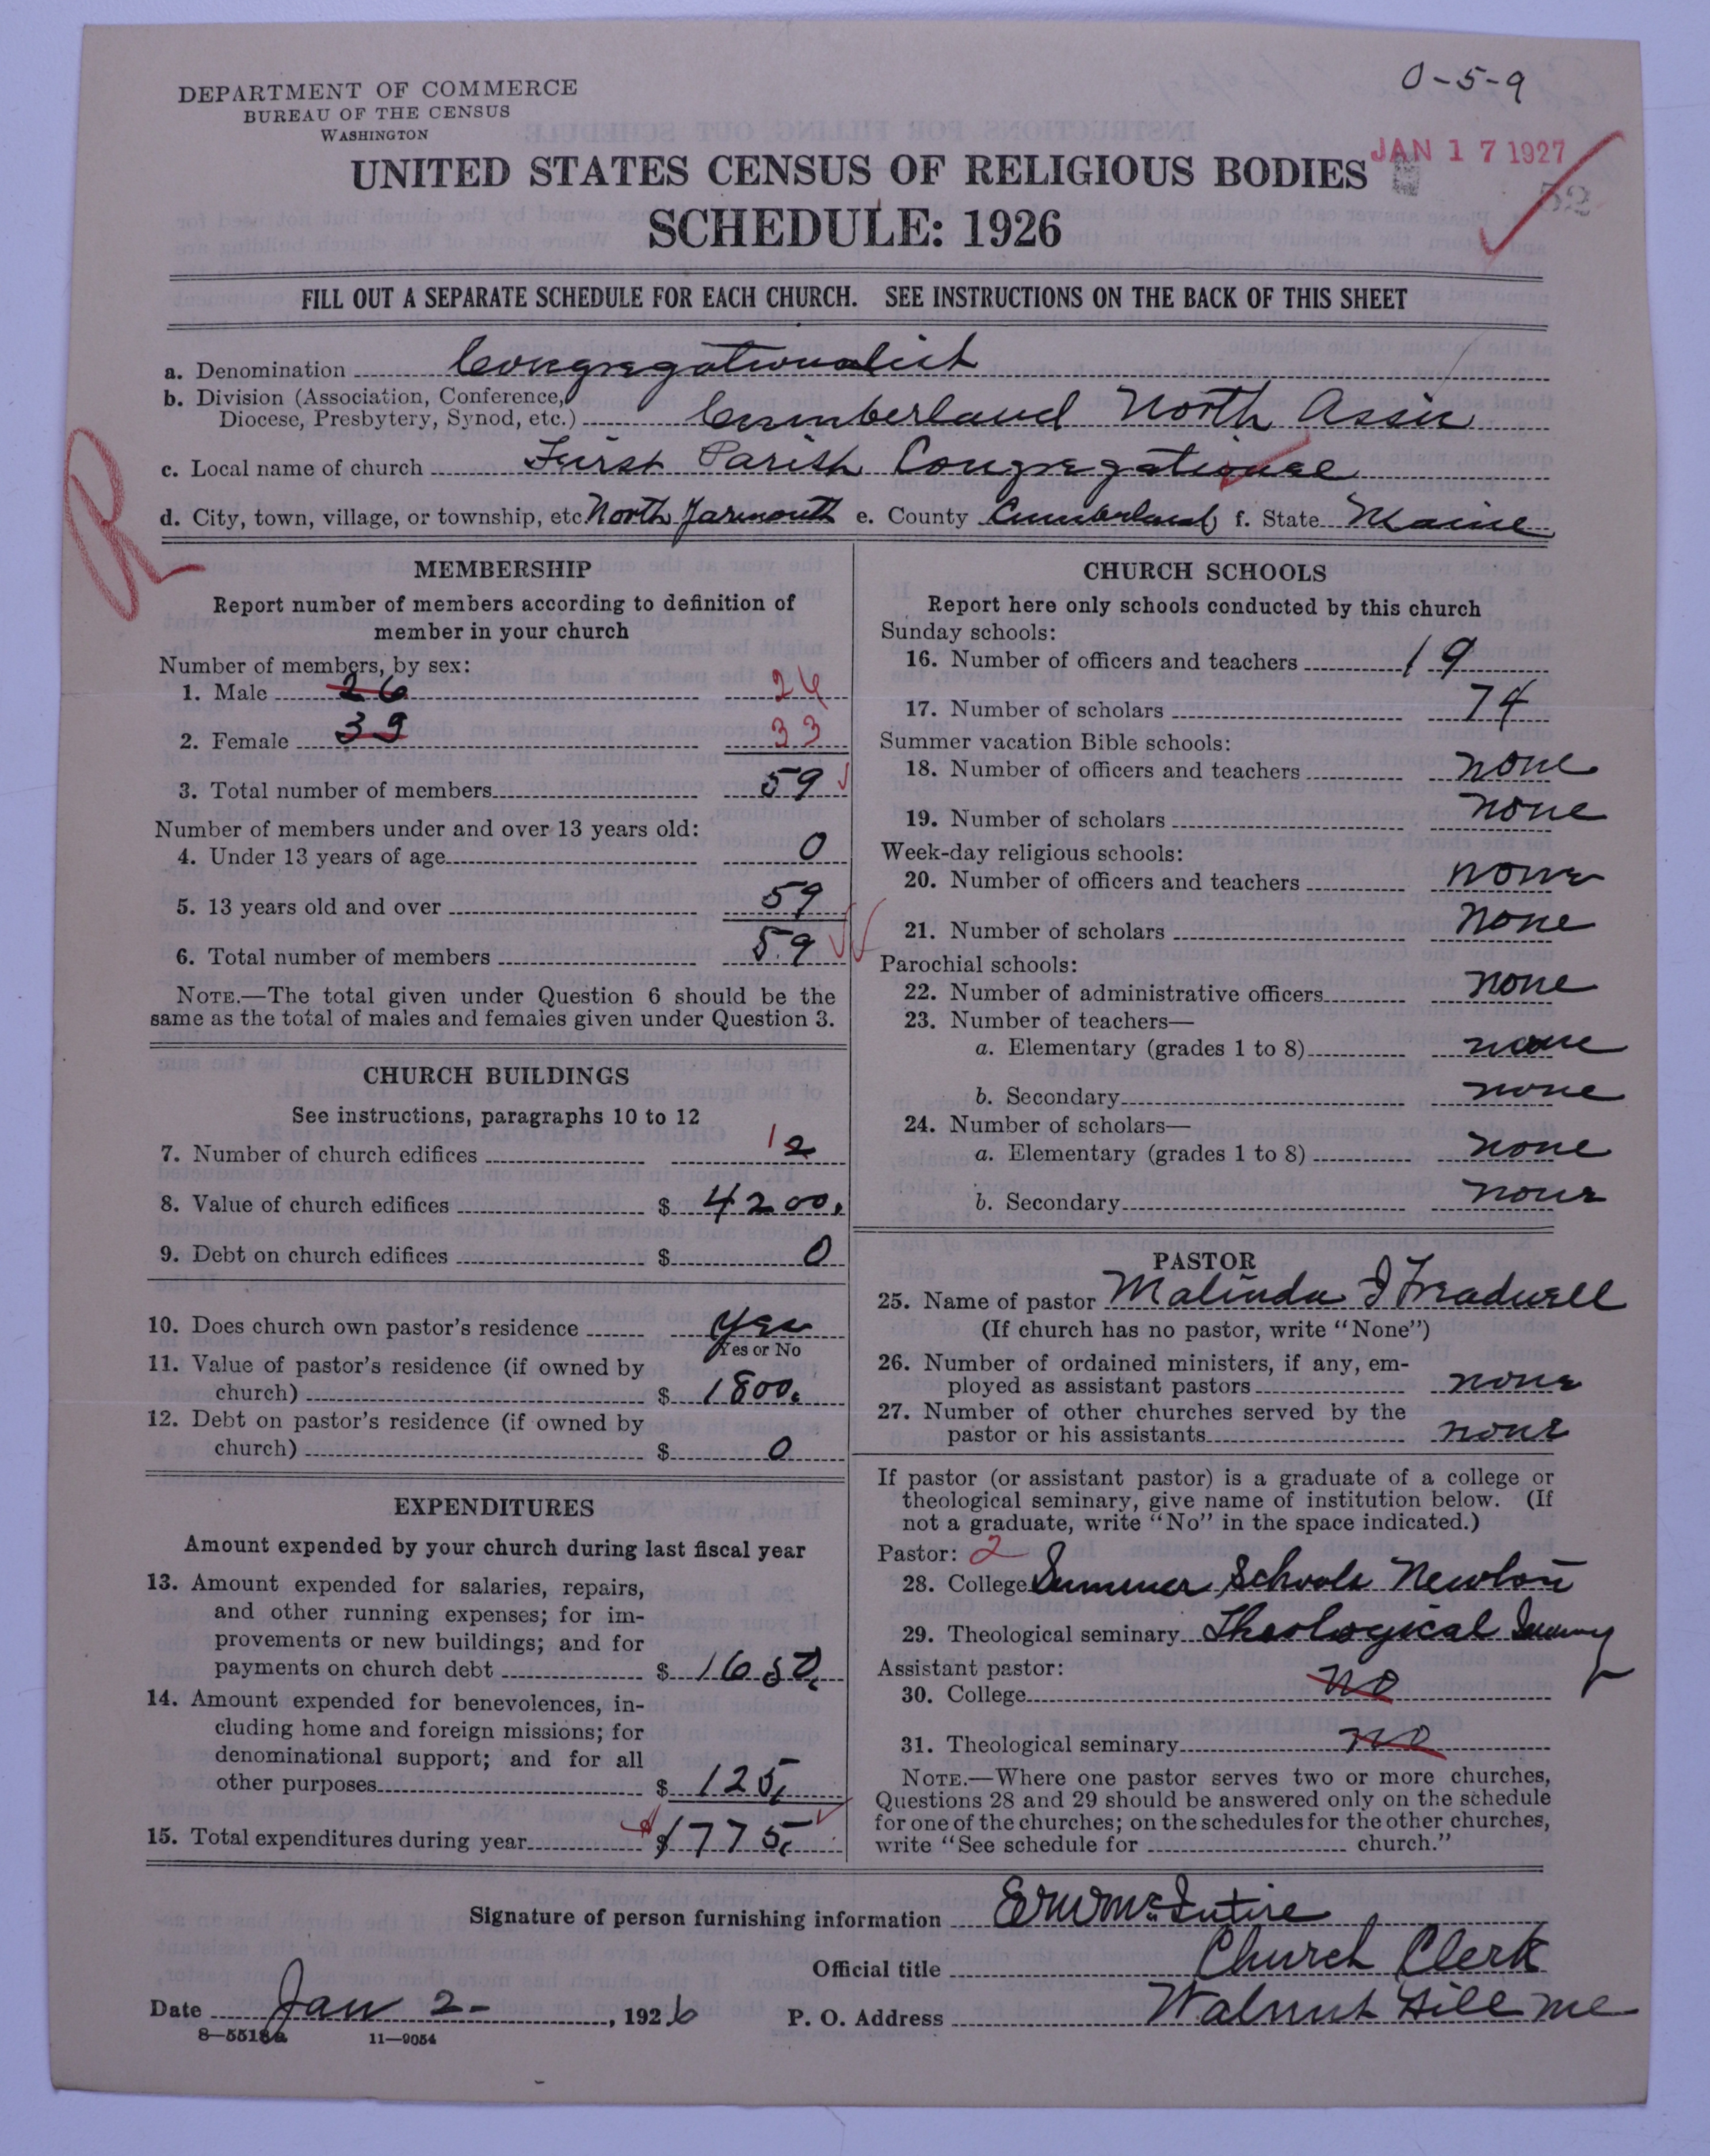 0-5-9
DEPARTMENT OF COMMERCE
BUREAU OF THE CENSUS
WASHINGTON
JAN 17 1927
52
UNITED STATES CENSUS OF RELIGIOUS BODIES
SCHEDULE: 1926
FILL OUT A SEPARATE SCHEDULE FOR EACH CHURCH. SEE INSTRUCTIONS ON THE BACK OF THIS SHEET
a. Denomination Congregationalist
b. Division (Association, Conference,
Diocese, Presbytery, Synod, etc.) Cumberland North Assn
c. Local name of church First Parish Congregational
d. City, town, village, or township, etc North Yarmouth e. County Cumberland f. State Maine
R
MEMBERSHIP
Report number of members according to definition of
member in your church
Number of members, by sex:
1. Male 26 26
2. Female 39 33
3. Total number of members 59
Number of members under and over 13 years old:
4. Under 13 years of age 0
5. 13 years old and over 59
6. Total number of members 59
NOTE.—The total given under Question 6 should be the
same as the total of males and females given under Question 3.
CHURCH BUILDINGS
See instructions, paragraphs 10 to 12
7. Number of church edifices 1 2
8. Value of church edifices $ 4200.
9. Debt on church edifices $ 0
10. Does church own pastor's residence Yes
Yes or No
11. Value of pastor's residence (if owned by
church) $ 1800.
12. Debt on pastor's residence (if owned by
church) $ 0
EXPENDITURES
Amount expended by your church during last fiscal year
13. Amount expended for salaries, repairs,
and other running expenses; for im-
provements or new buildings; and for
payments on church debt $ 1650.
14. Amount expended for benevolences, in-
cluding home and foreign missions; for
denominational support; and for all
other purposes $ 125.
15. Total expenditures during year $1775.
CHURCH SCHOOLS
Report here only schools conducted by this church
Sunday schools:
16. Number of officers and teachers 19
17. Number of scholars 74
Summer vacation Bible schools:
18. Number of officers and teachers none
19. Number of scholars none
Week-day religious schools:
20. Number of officers and teachers none
21. Number of scholars none
Parochial schools:
22. Number of administrative officers none
23. Number of teachers—
a. Elementary (grades 1 to 8) none
b. Secondary none
24. Number of scholars—
a. Elementary (grades 1 to 8) none
b. Secondary none
PASTOR
25. Name of pastor Malinda J Treadwell
(If church has no pastor, write "None")
26. Number of ordained ministers, if any, em-
ployed as assistant pastors none
27. Number of other churches served by the
pastor or his assistants none
If pastor (or assistant pastor) is a graduate of a college or
theological seminary, give name of institution below. (If
not a graduate, write "No" in the space indicated.)
Pastor: 2
28. College Summer Schools Newton
29. Theological seminary Theological
Assistant pastor:
30. College no
31. Theological seminary no
NOTE.—Where one pastor serves two or more churches,
Questions 28 and 29 should be answered only on the schedule
for one of the churches; on the schedules for the other churches,
write "See schedule for church."
Signature of person furnishing information McIntire
Official title Church Clerk
Date Jan 2-, 1926 P. O. Address Walnut Hill Me
8—5518a 11—9054